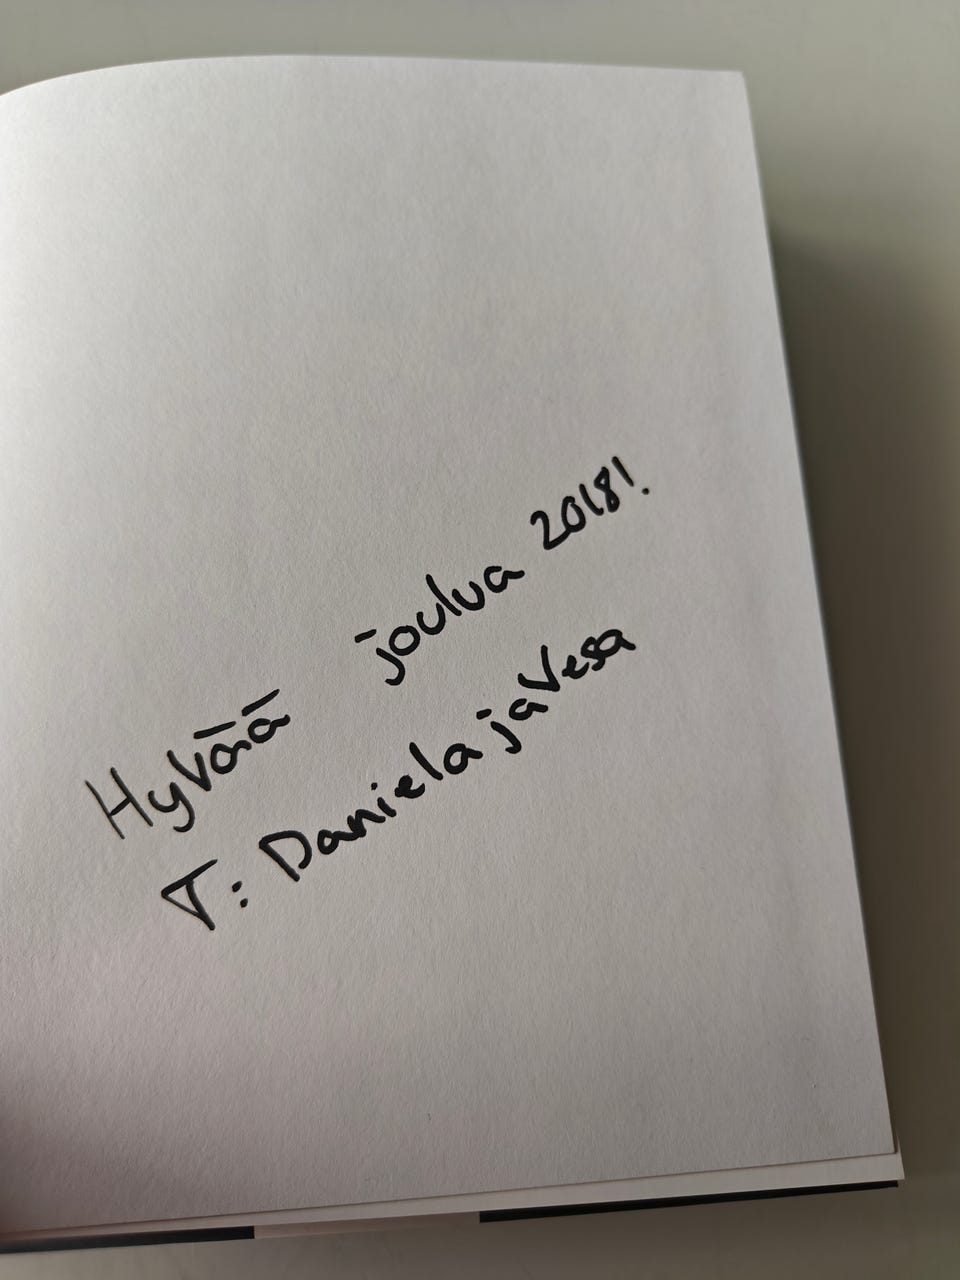 Hyvää joulua 2018!
T: Daniela ja Vesa